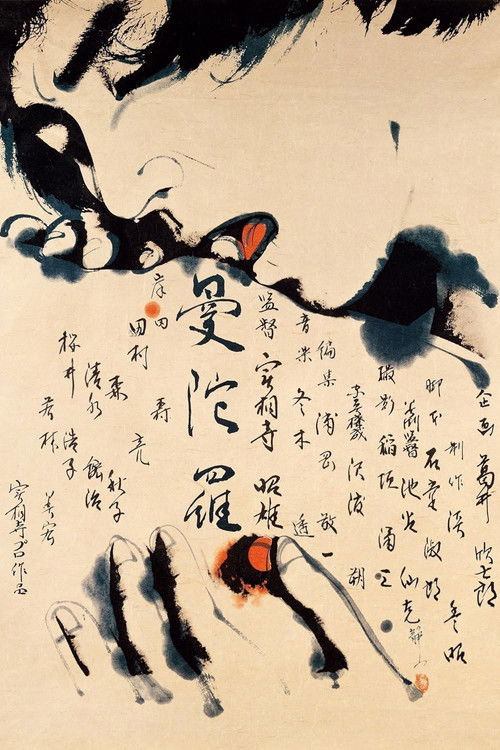 企画 葛井 欣士郎
制作 淡 豊昭
脚本 石堂 淑朗
美術監督 池谷 仙克
撮影 稲垣 涌三
沢渡 朔
編集 浦岡 敬一
音楽 冬木 透
監督 実相寺 昭雄
曼陀羅
岸田
田村 亮
森 秋子
清水 紘治
桜井 浩子
若林 美宏
実相寺プロ作品